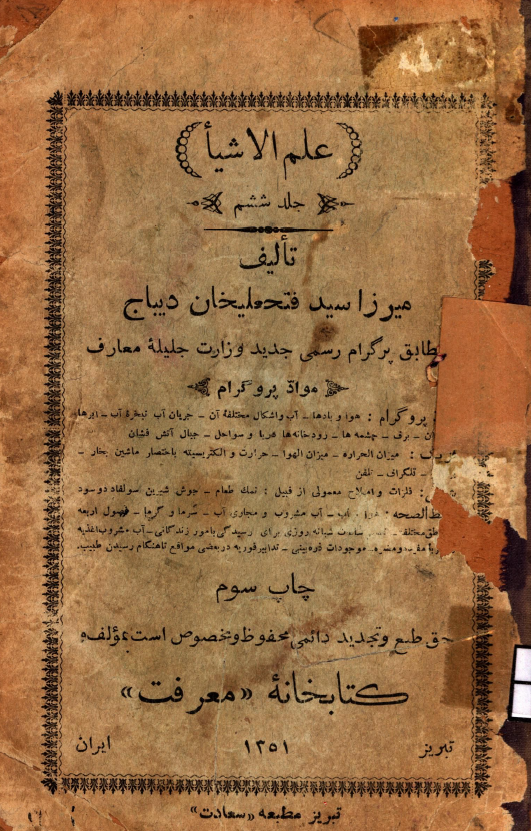 علم الاشیأ
جلد ششم
تألیف
میرزا سید فتحعلیخان دیباج
طابق پرگرام رسمی جدید وزارت جلیلهٔ معارف
مواد پروگرام
پروگرام : هوا و بادها ـ آب واشکال مختلفهٔ آن ـ جریان آب تبخرهٔ آب ـ ابرها
ـ برف ـ چشمه ها ـ رودخانه‌ها دریا و سواحل ـ جبال آتش فشان
میزان الحراره ـ میزان الهوا ـ حرارت و الکتریسیته باختصار ماشین بخار ـ
ـ تلگرای ـ تلفن
فلزات و املاح معمولی از قبیل : نمك طعام ـ جوش شیرین سولفاد دوسود
ظ الصحه : آب ـ آب مشروب و مجاری آب ـ سرما و گرما ـ فصول اربعه
ساعت شبانه روزی برای رسیدگی بامور زندگانی ـ آب مشروب اغذیه
موجودات ذره‌بینی ـ تدابیر فوریه در بعضی مواقع تاهنگام رسیدن طبیب.
چاپ سوم
حق طبع و تجدید دائمی محفوظ و مخصوص است بمؤلف
کتابخانهٔ «معرفت»
تبریز ۱۳۵۱ ایران
تبریز مطبعه «سعادت»